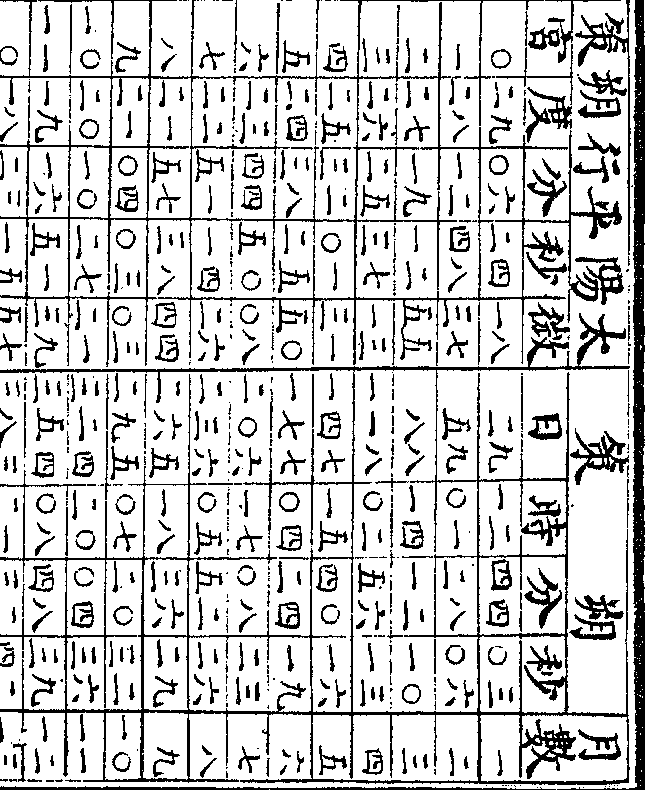 月數 朔策 太陽平行朔策
日 時 分 秒 宮 度 分 秒 微
一 二九 一二 四四 〇三 〇 二九 〇六 二四 一八
二 五九 〇一 二八 〇六 一 二八 一二 四八 三七
三 八八 一四 一二 一〇 二 二七 一九 一二 五五
四 一一八 〇二 五六 一三 三 二六 二五 三七 一三
五 一四七 一五 四〇 一六 四 二五 三二 〇一 三一
六 一七七 〇四 二四 一九 五 二四 三八 二五 五〇
七 二〇六 一七 〇八 二三 六 二三 四四 五〇 〇八
八 二三六 〇五 五二 二六 七 二二 五一 一四 二六
九 二六五 一八 三六 二九 八 二一 五七 三八 四四
一〇 二九五 〇七 二〇 三二 九 二一 〇四 〇三 〇三
一一 三二四 二〇 〇四 三六 一〇 二〇 一〇 二七 二一
一二 三五四 〇八 四八 三九 一一 一九 一六 五一 三九
一三 三八三 〇 一八 二三 一五 五七